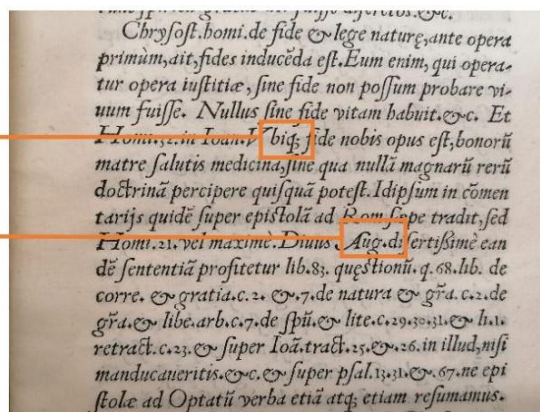 Chrysost.homi.de fide & lege naturę,ante opera
primùm,ait,fides inducẽda est.Eum enim, qui opera-
tur opera iustitiæ, sine fide non possum probare vi-
uum fuisse. Nullus sine fide vitam habuit.&c. Et
Homi.32.in Ioan.Vbiq; fide nobis opus est,bonorũ
matre salutis medicina,sine qua nullã magnarũ rerũ
doctrinã percipere quisquã potest.Idipsum in cõmen
tarijs quidẽ super epistolã ad Rom sępe tradit,sed
Homi.21.vel maximè.Diuus Aug.disertißimè ean
dẽ sententiã profitetur lib.83. quęstionũ. q.68.lib. de
corre. & gratia.c.2. &.7.de natura & gr̃a.c.2.de
gr̃a.& libe.arb.c.7.de sp̃u.& lite.c.29.30.31.& li.1.
retract.c.23.& super Ioã.tract.25.&.26.in illud,nisi
manducaueritis.&c.& super psal.13.31.&.67.ne epi
stolæ ad Optatũ verba etiã atq; etiam resumamus.